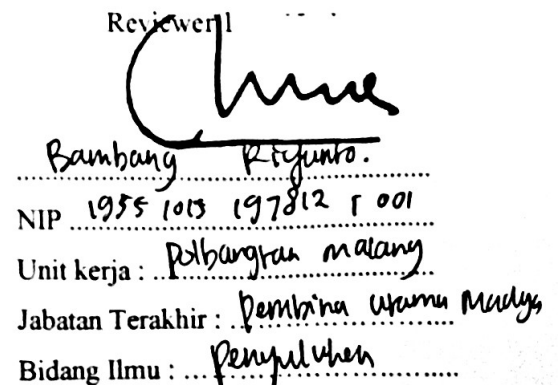 Reviewer 1
Bambang Riyanto.
NIP 1955 1013 197812 1 001
Unit kerja : Polbangtan Malang
Jabatan Terakhir : Pembina Utama Madya
Bidang Ilmu : Penyuluhan